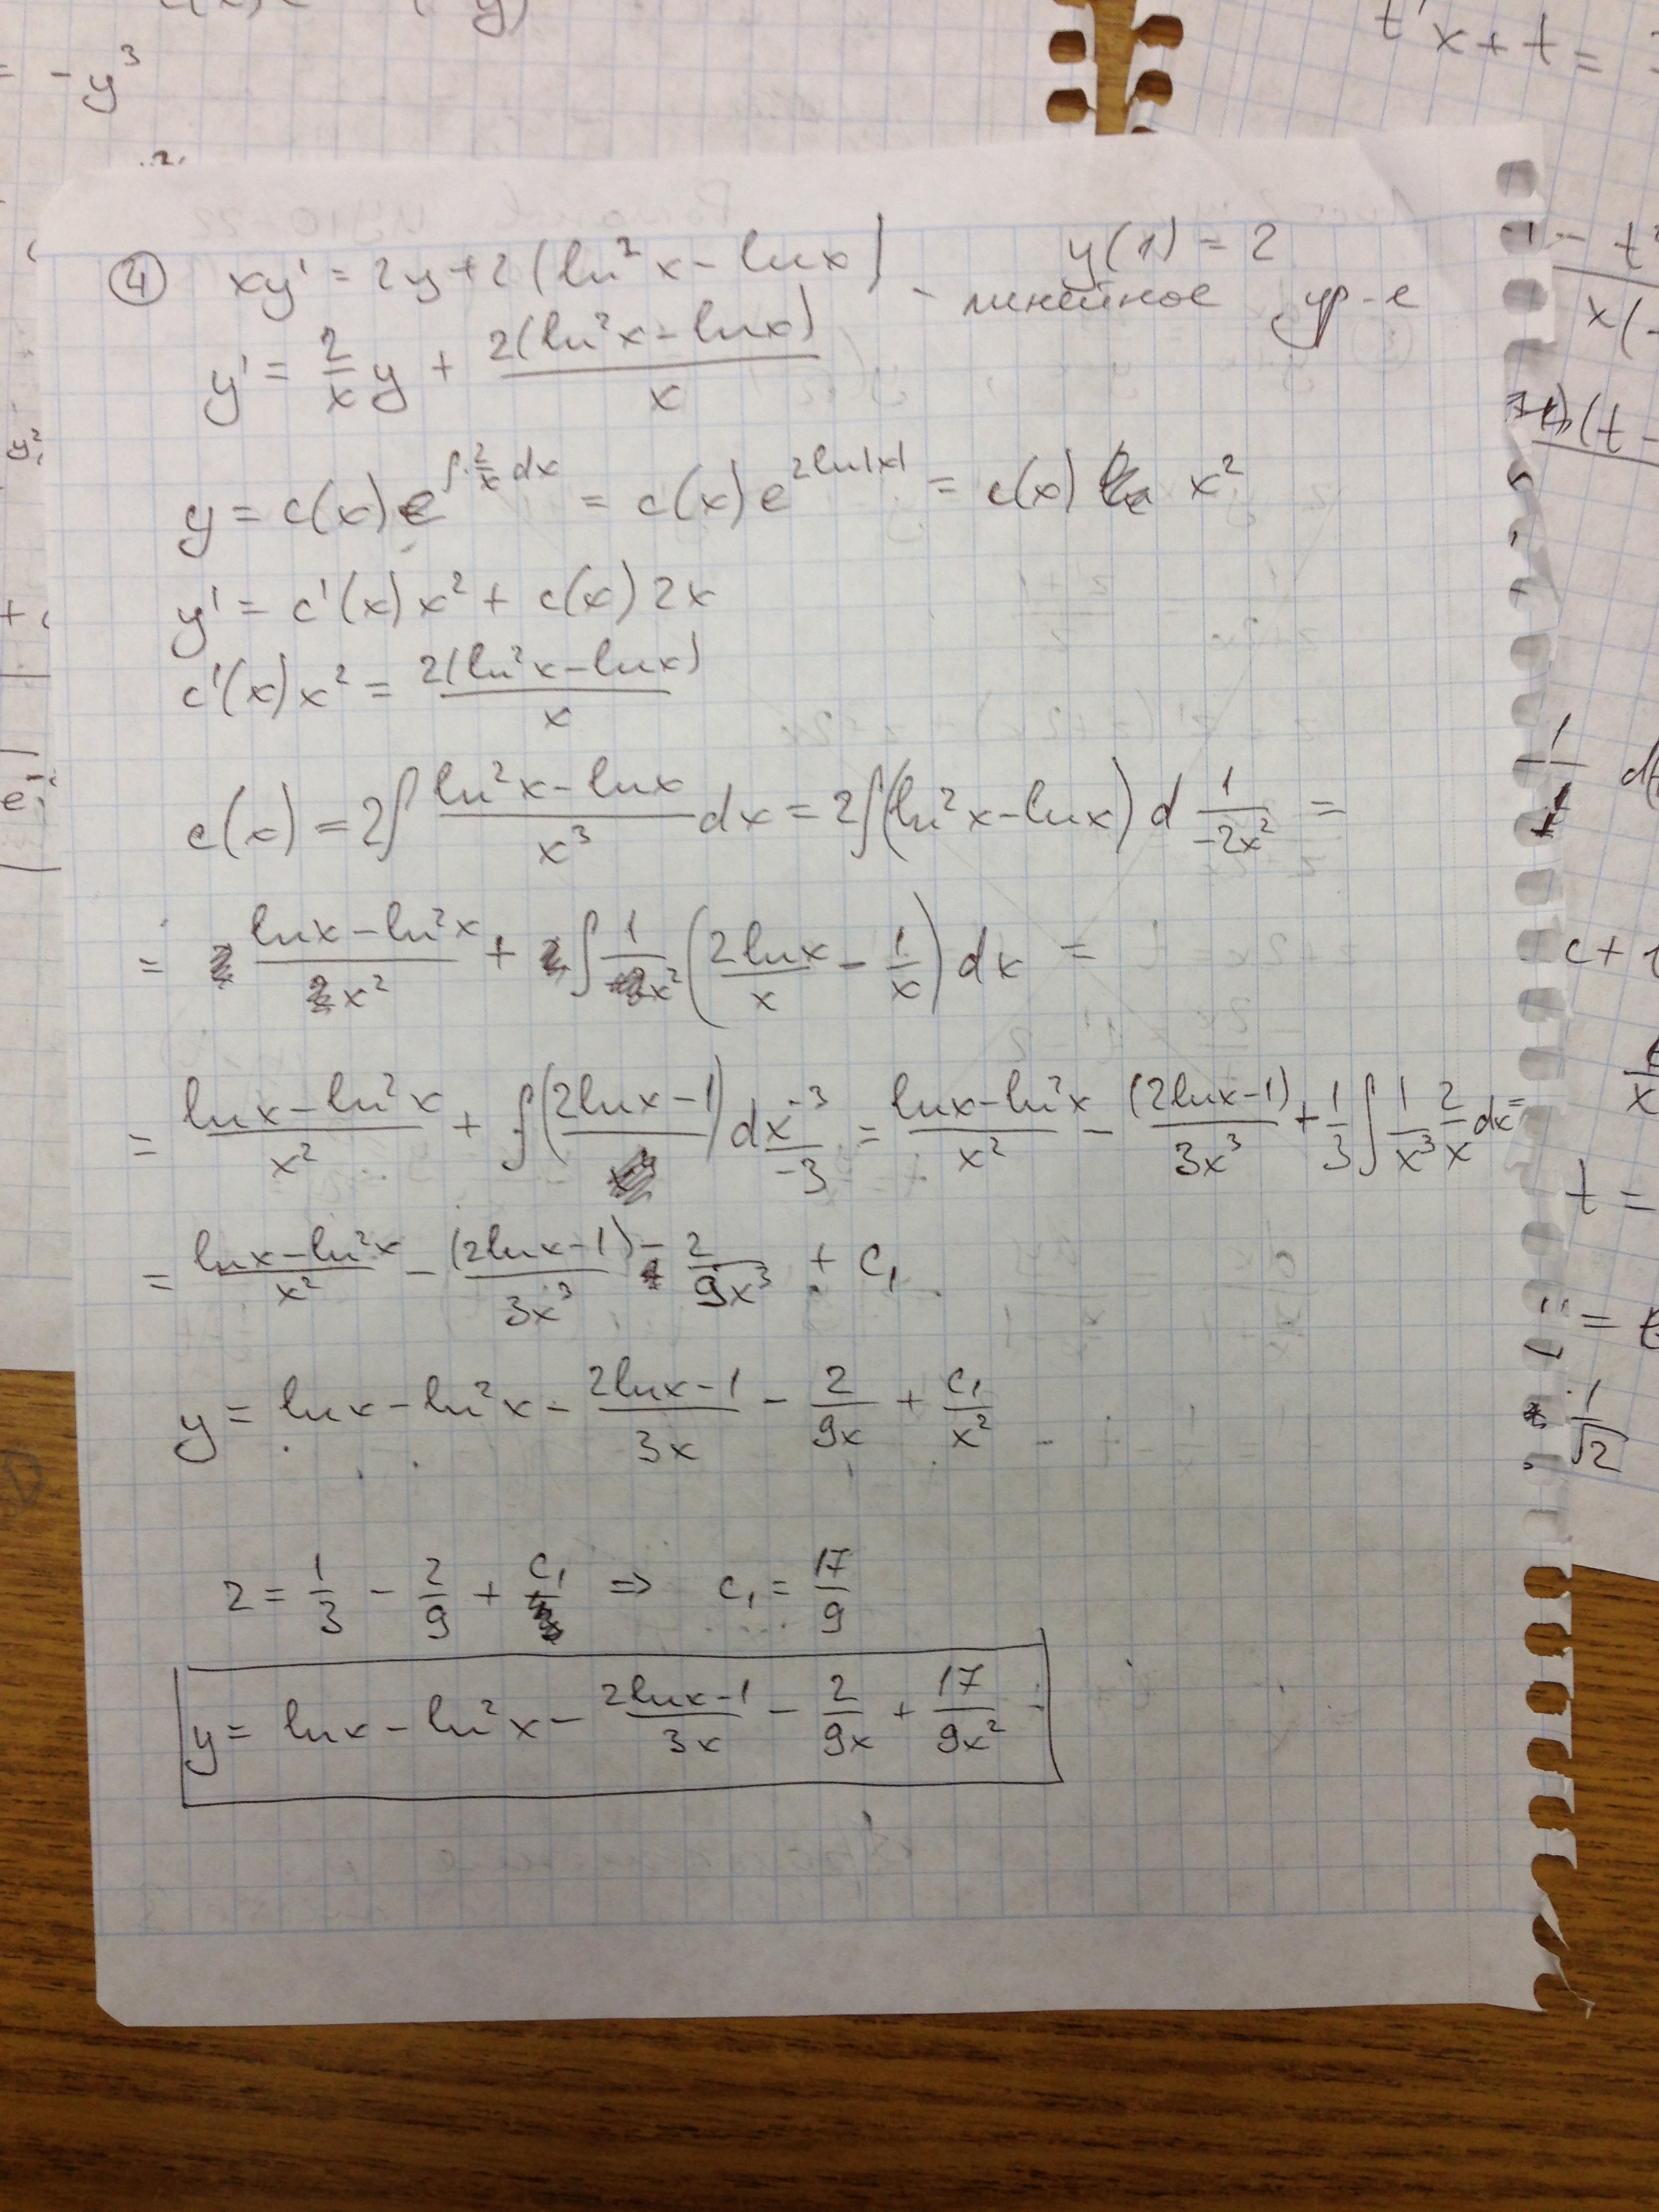 = -y³
t'x+t=
④ xy' = 2y+2(ln²x-lnx) y(1) = 2
- линейное ур-е
y' = \frac{2}{x}y + \frac{2(ln²x-lnx)}{x}
y = c(x)e^{∫\frac{2}{x}dx} = c(x)e^{2ln|x|} = c(x) x²
y' = c'(x)x² + c(x)2x
c'(x)x² = \frac{2(ln²x-lnx)}{x}
c(x) = 2∫\frac{ln²x-lnx}{x³}dx = 2∫(ln²x-lnx)d\frac{1}{-2x²} =
= \frac{lnx-ln²x}{x²} + ∫\frac{1}{x²}(\frac{2lnx}{x} - \frac{1}{x})dx =
= \frac{lnx-ln²x}{x²} + ∫(2lnx-1)d\frac{x^{-3}}{-3} = \frac{lnx-ln²x}{x²} - \frac{(2lnx-1)}{3x³} + \frac{1}{3}∫\frac{1}{x³}\frac{2}{x}dx =
= \frac{lnx-ln²x}{x²} - \frac{(2lnx-1)}{3x³} - \frac{2}{9x³} + c₁
y = lnx-ln²x - \frac{2lnx-1}{3x} - \frac{2}{9x} + \frac{c₁}{x²}
2 = \frac{1}{3} - \frac{2}{9} + c₁ => c₁ = \frac{17}{9}
y = lnx-ln²x - \frac{2lnx-1}{3x} - \frac{2}{9x} + \frac{17}{9x²}
c+
t =
\frac{1}{√2}